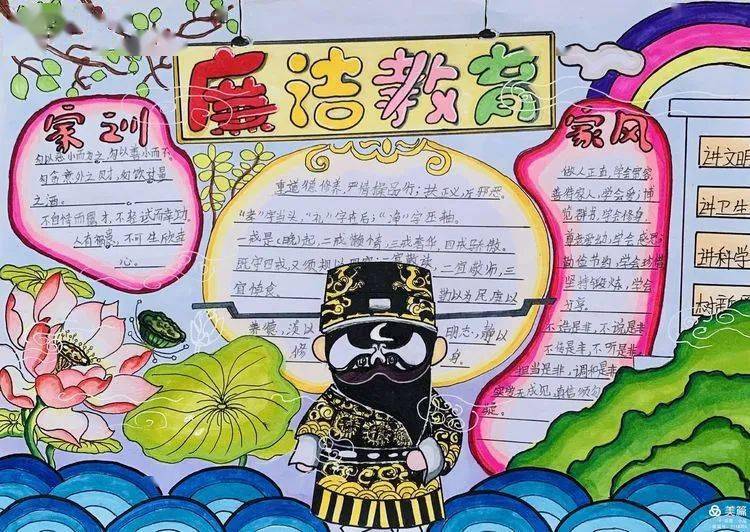 廉洁教育
家训
勿以恶小而为之,勿以善小而不
勿贪意外之财,勿饮过量
之酒。
不自恃而露才,不轻试而幸功.
人有祸患,不可生欣幸
心。
重道德修养,严情操品行;扶正义,斥邪恶。
"孝"字当头,"礼"字在后;"净"字压轴。
一戒晏(晚)起,二戒懒惰,三戒奢华,四戒骄傲。
既守四戒,又须规以四宜:一宜敬孩
二宜敬师,三
宜慎食、
勤以为民,廉以
养德,淡以
明志,静以
修
身。
家风
做人正直,学会宽容,
善待家人,学会爱;博
览群书,学会修身,
尊老爱幼,学会感恩;
勤俭节约,学会珍惜
坚持锻炼,学会
分享。
不造是非,不说是非
不传是非,不听是非,
担当是非,调和是非
讲文明
讲卫生
讲科学
树新
美篇